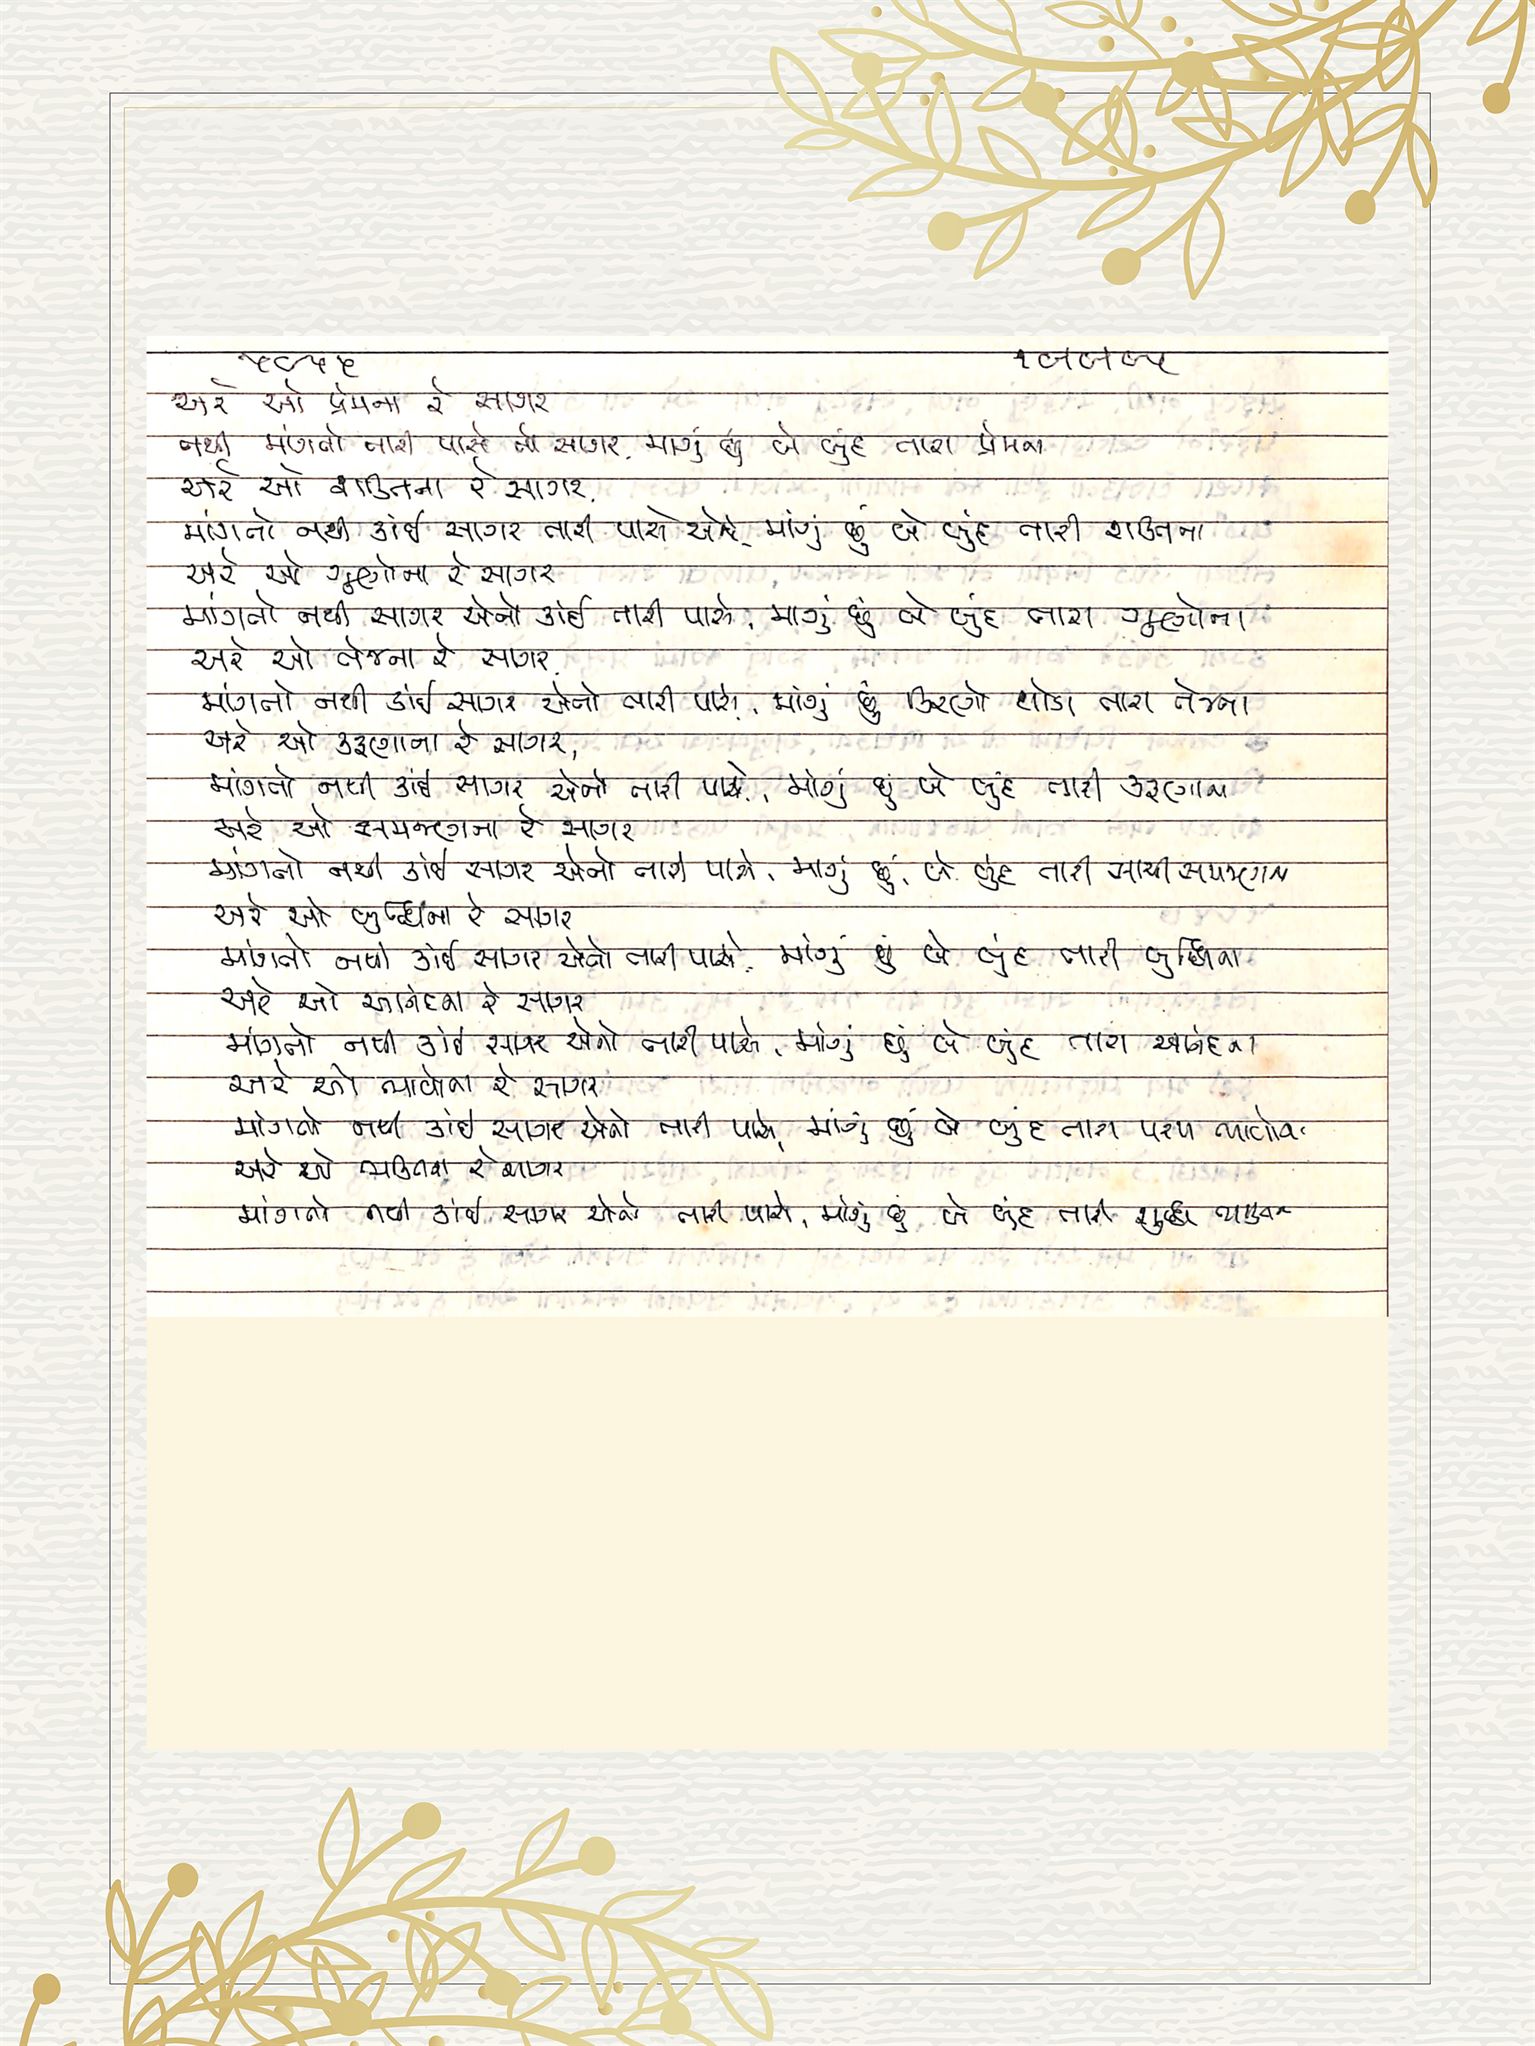 ૫૮૫૫ ૧૯૯૫
અરે ઓ પ્રેમના રે સાગર
નથી માંગતો તારી પાસે તો સાગર, માગું છું બે બુંદ તારા પ્રેમના
અરે ઓ શક્તિના રે સાગર,
માંગતો નથી કાંઈ સાગર તારી પાસે એવો, માંગું છું બે બુંદ તારી શક્તિના
અરે ઓ ગુણોના રે સાગર
માંગતો નથી સાગર એનો કાંઈ તારી પાસે, માગું છું બે બુંદ તારા ગુણોના
અરે ઓ તેજના રે સાગર,
માંગતો નથી કાંઈ સાગર એનો તારી પાસે, માંગું છું કિરણો થોડા તારા તેજના
અરે ઓ કરુણાના રે સાગર,
માંગતો નથી કાંઈ સાગર એનો તારી પાસે, માંગું છું બે બુંદ તારી કરુણાના
અરે ઓ સમજણના રે સાગર
માંગતો નથી કાંઈ સાગર એનો તારી પાસે, માગું છું, બે બુંદ તારી સાચી સમજણના
અરે ઓ બુદ્ધિના રે સાગર
માંગતો નથી કાંઈ સાગર એનો તારી પાસે, માંગું છું બે બુંદ તારી બુદ્ધિના
અરે ઓ આનંદના રે સાગર
માંગતો નથી કાંઈ સાગર એનો તારી પાસે, માંગું છું બે બુંદ તારા આનંદના
અરે ઓ ભાવોના રે સાગર
માંગતો નથી કાંઈ સાગર એનો તારી પાસે, માંગું છું બે બુંદ તારા પરમ ભાવોના
અરે ઓ ભક્તિના રે સાગર
માંગતો નથી કાંઈ સાગર એનો તારી પાસે, માંગું છું બે બુંદ તારી શુદ્ધ